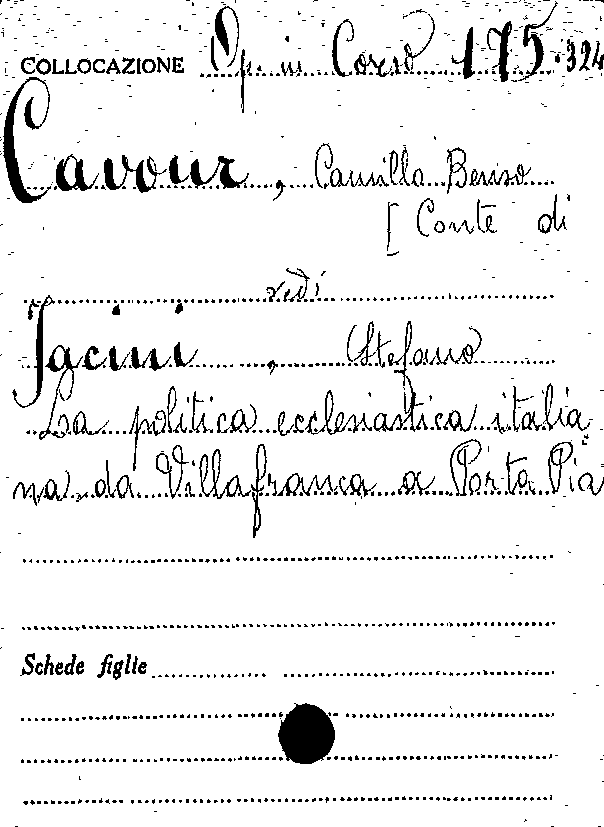 COLLOCAZIONE Op. in Corso 175.324
Cavour, Camillo Benso
[Conte di
vedi
Jacini, Stefano
La politica ecclesiastica italia
na da Villafranca a Porta Pia
Schede figlie